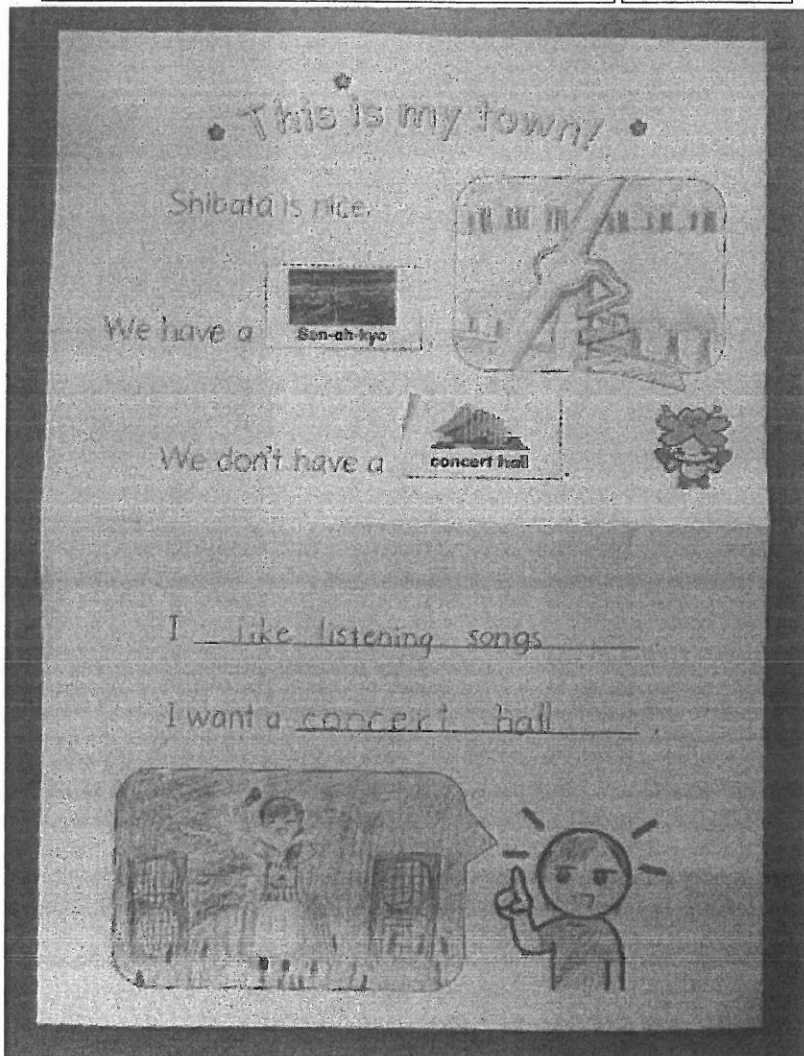 This is my town!
Shibata is nice.
We have a San-ah-kyo
We don't have a concert hall.
I like listening songs.
I want a concert hall.